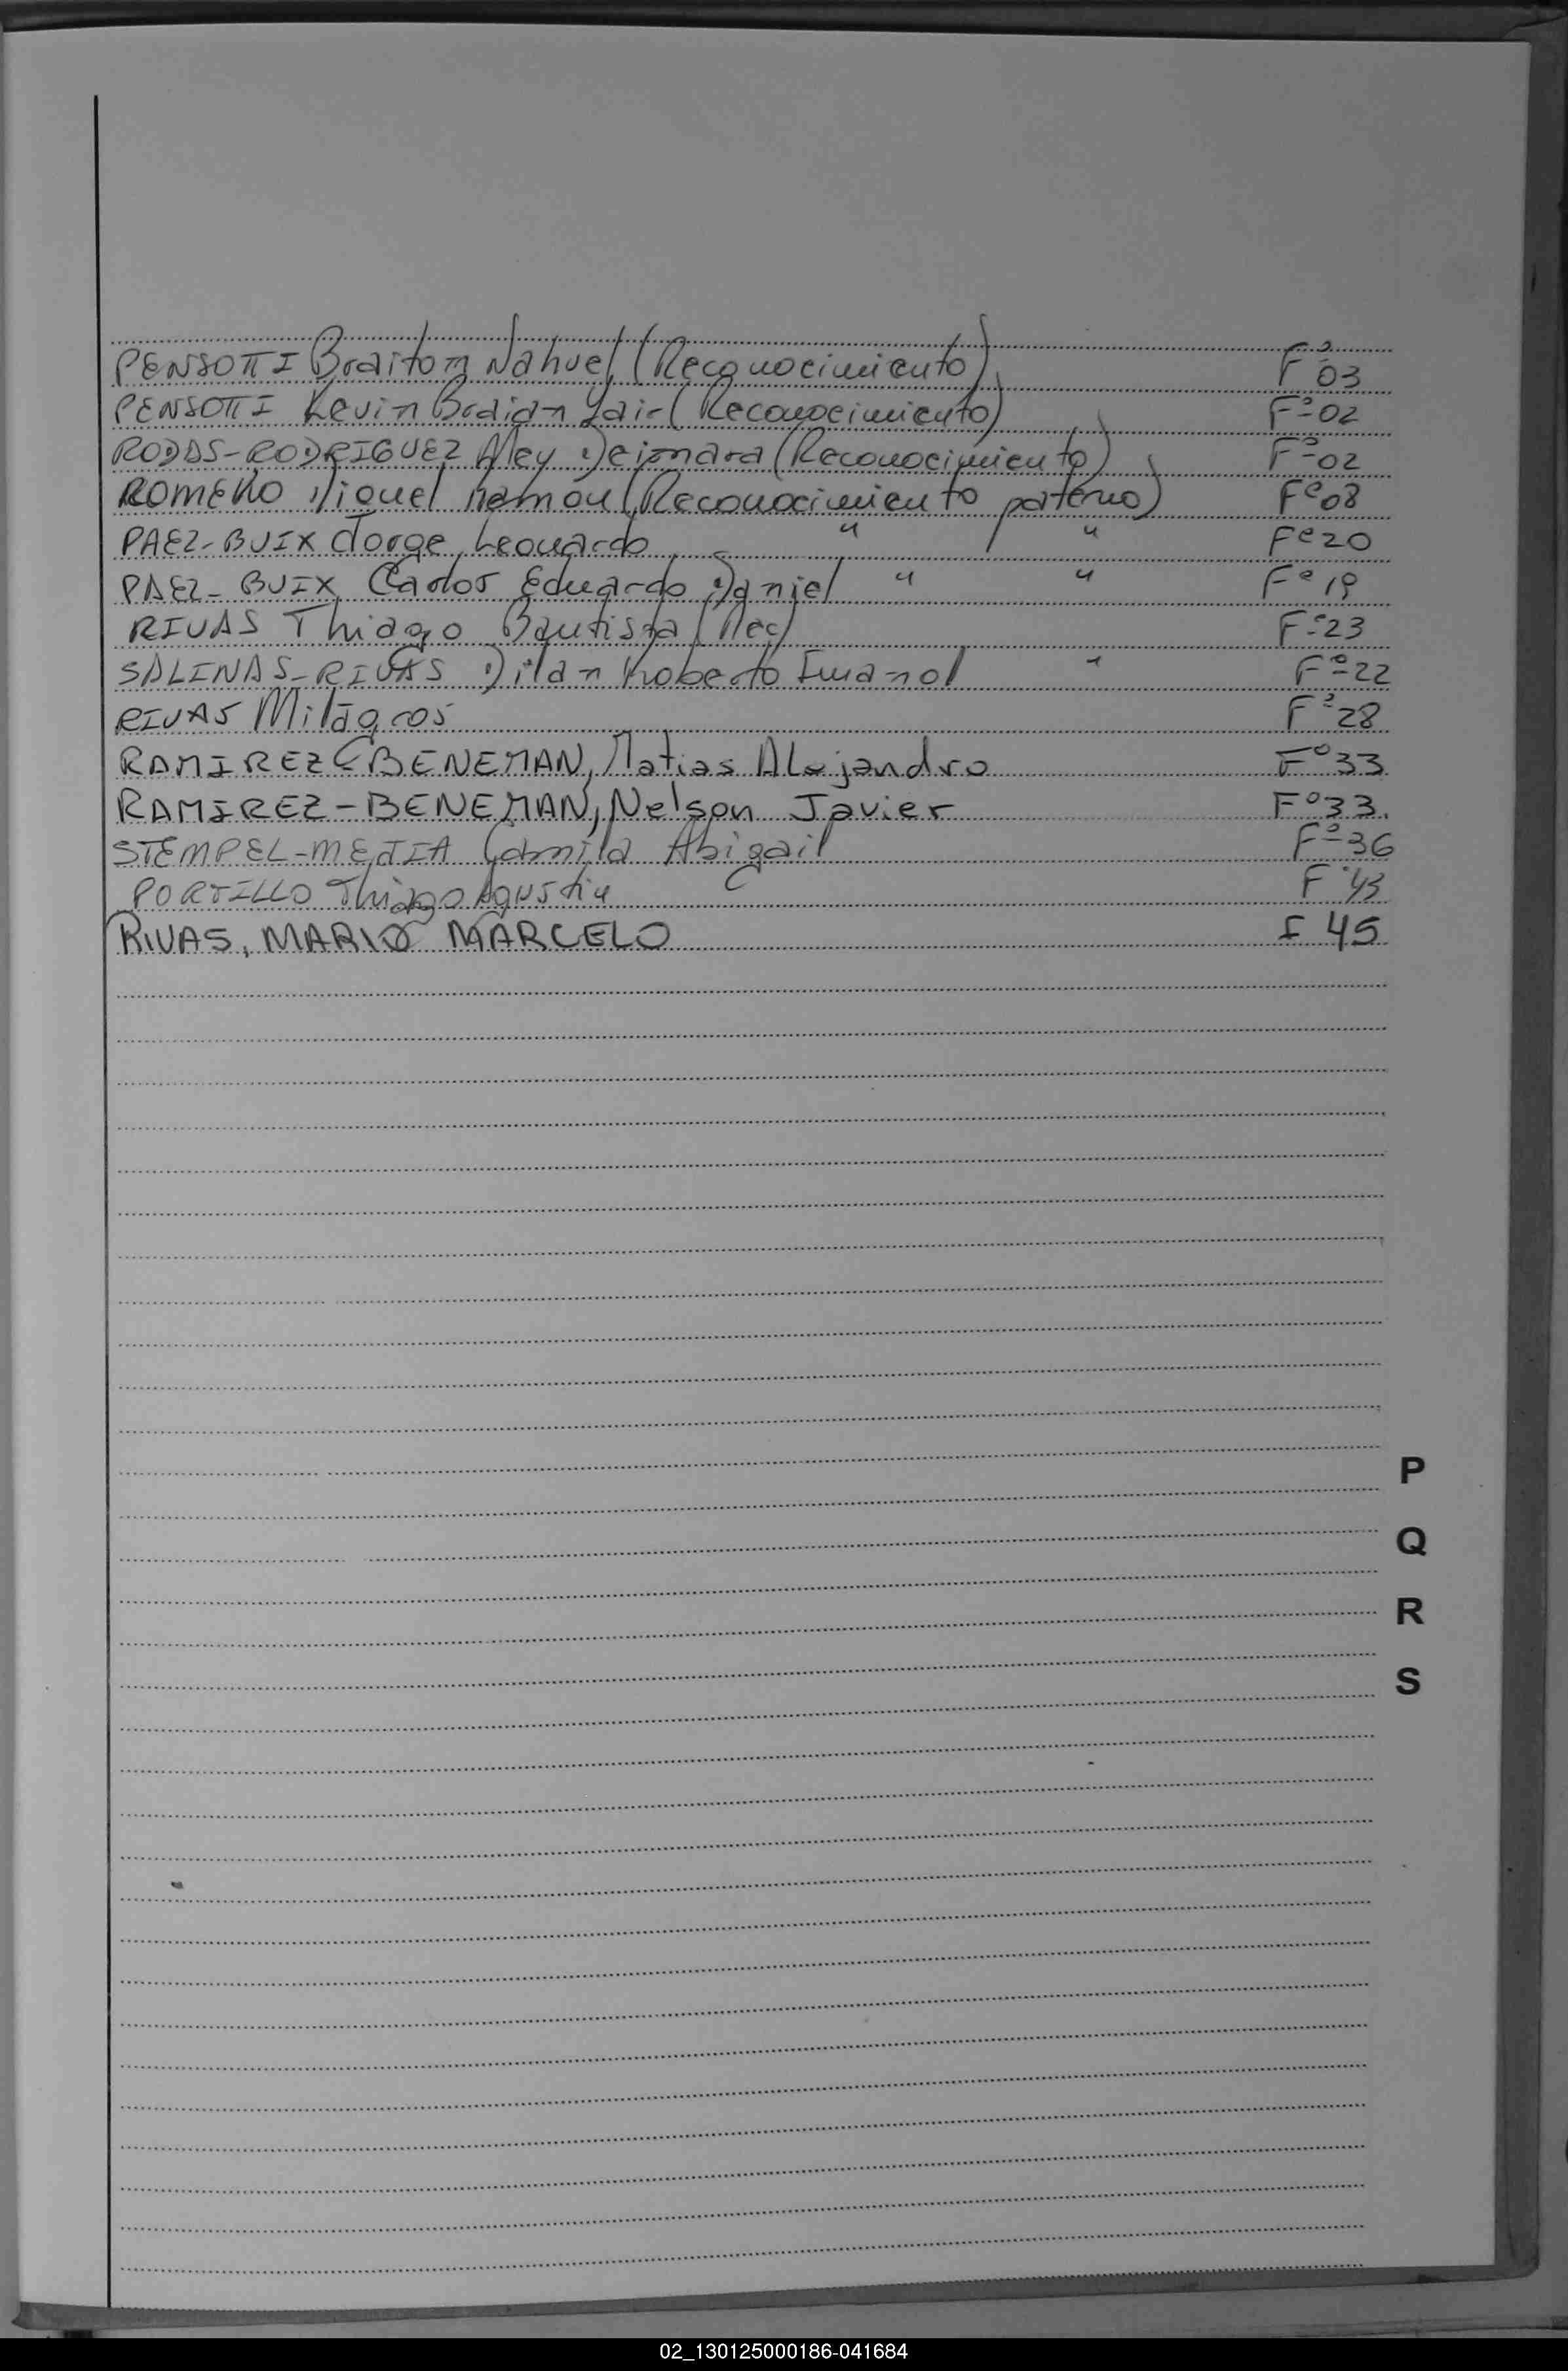 PENSOTTI Braitom Nahuel (Reconocimiento) Fº 03
PENSOTTI Kevin Braian Yair (Reconocimiento) Fº 02
RODAS-RODRIGUEZ Aley Deionara (Reconocimiento) Fº 02
ROMERO Miguel Ramon (Reconocimiento paterno) Fº 08
PAEZ-BUIX Jorge Leonardo " " Fº 20
PAEZ-BUIX Carlos Eduardo Daniel " " Fº 19
RIVAS Thiago Bautista (Rec) Fº 23
SALINAS-RIVAS Dilan Roberto Emanol " Fº 22
RIVAS Milagros Fº 28
RAMIREZ-BENEMAN, Matias Alejandro Fº 33
RAMIREZ-BENEMAN, Nelson Javier Fº 33.
STEMPEL-MEJIA Camila Abigail Fº 36
PORTILLO Thiago Agustin Fº 43
RIVAS, MARIO MARCELO F 45
P
Q
R
S
02_130125000186-041684